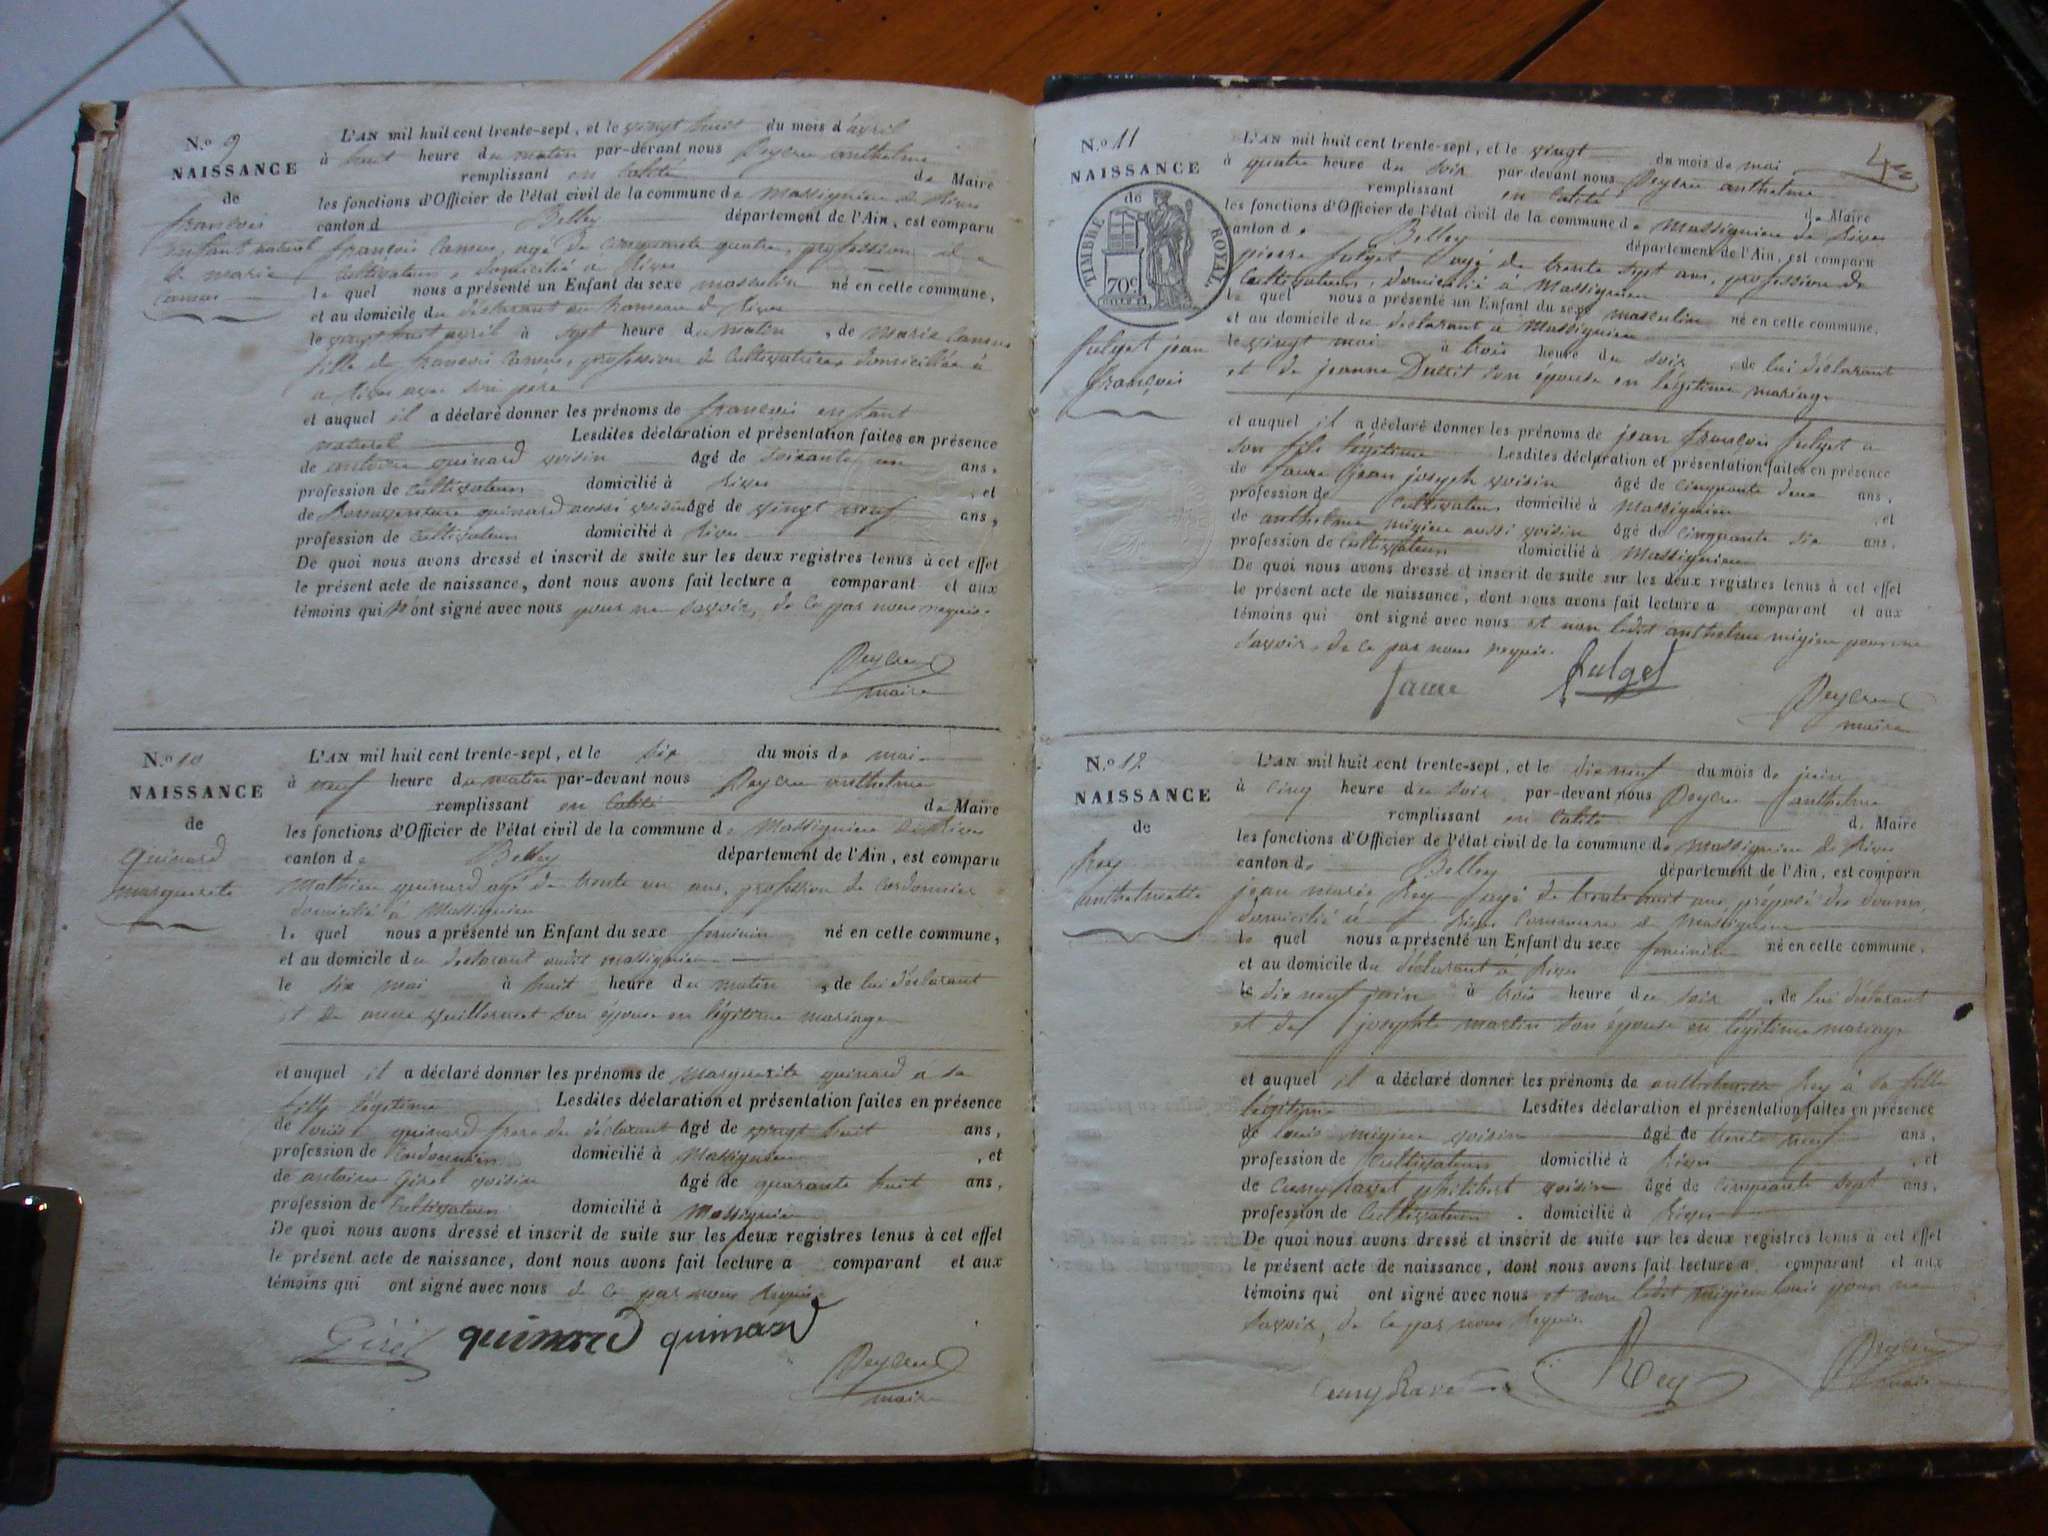 N.º 9
NAISSANCE
de
françois
enfant naturel
de marie
Camus
L'AN mil huit cent trente-sept, et le vingt huit du mois d'avril
à huit heure du matin par-devant nous Peycru anthelme
remplissant en calité de Maire
les fonctions d'Officier de l'état civil de la commune de Massignieu de Rives
canton de Belley département de l'Ain, est comparu
françois Camus, agé de cinquante quatre, profession de
Cultivateur, domicilié à Rives
le quel nous a présenté un Enfant du sexe masculin né en cette commune,
et au domicile du déclarant au hameau de Rives
le vingt huit avril à sept heure du matin, de Marie Camus
fille de françois Camus, profession de Cultivatrice domiciliée à
a Rives avec son père
et auquel il a déclaré donner les prénoms de françois enfant
naturel Lesdites déclaration et présentation faites en présence
de antoine quinard voisin âgé de soixante un ans,
profession de cultivateur domicilié à Rives, et
de Bonaventure quinard aussi voisin âgé de vingt neuf ans,
profession de cultivateur domicilié à Rives
De quoi nous avons dressé et inscrit de suite sur les deux registres tenus à cet effet
le présent acte de naissance, dont nous avons fait lecture a comparant et aux
témoins qui n'ont signé avec nous pour ne savoir, de ce par nous requis.
Peycru
maire
N.º 10
NAISSANCE
de
quinard
marguerite
L'AN mil huit cent trente-sept, et le six du mois de mai
à neuf heure du matin par-devant nous Peycru anthelme
remplissant en calité de Maire
les fonctions d'Officier de l'état civil de la commune de Massignieu de Rives
canton de Belley département de l'Ain, est comparu
Mathieu quinard agé de trente un ans, profession de cordonnier
domicilié à Massignieu
le quel nous a présenté un Enfant du sexe feminin né en cette commune,
et au domicile du déclarant audit massignieu
le six mai à huit heure du matin, de lui déclarant
et de anne vuillermet son épouse en légitime mariage
et auquel il a déclaré donner les prénoms de marguerite quinard à sa
fille légitime Lesdites déclaration et présentation faites en présence
de louis quinard frere du déclarant âgé de vingt huit ans,
profession de Cordonnier domicilié à Massignieu, et
de antoine Girel voisin âgé de quarante huit ans,
profession de Cultivateur domicilié à Massignieu
De quoi nous avons dressé et inscrit de suite sur les deux registres tenus à cet effet
le présent acte de naissance, dont nous avons fait lecture a comparant et aux
témoins qui ont signé avec nous de ce par nous Requis
Girel quinard quinard
Peycru
maire
4
N.º 11
NAISSANCE
de
TIMBRE ROYAL
70 c.
fulget jean
françois
L'AN mil huit cent trente-sept, et le vingt du mois de mai
à quatre heure du soir par-devant nous Peycru anthelme
remplissant en calité de Maire
les fonctions d'Officier de l'état civil de la commune de Massignieu de Rives
canton de Belley département de l'Ain, est comparu
pierre fulget agé de trente sept ans, profession de
Cultivateur, domicilié à Massignieu
le quel nous a présenté un Enfant du sexe masculin né en cette commune,
et au domicile du déclarant à Massignieu
le vingt mai à trois heure du soir, de lui déclarant
et de jeanne son épouse en légitime mariage
et auquel il a déclaré donner les prénoms de jean françois fulget a
son fils légitime Lesdites déclaration et présentation faites en présence
de jean joseph voisin âgé de cinquante deux ans,
profession de cultivateur domicilié à Massignieu, et
de anthelme migieu aussi voisin âgé de cinquante six ans,
profession de cultivateur domicilié à Massignieu
De quoi nous avons dressé et inscrit de suite sur les deux registres tenus à cet effet
le présent acte de naissance, dont nous avons fait lecture a comparant et aux
témoins qui ont signé avec nous et non ledit anthelme migieu pour ne
savoir, de ce par nous requis.
fulget
Peycru
maire
N.º 12
NAISSANCE
de
Rey
anthelmette
L'AN mil huit cent trente-sept, et le dix neuf du mois de juin
à cinq heure du soir par-devant nous Peycru anthelme
remplissant en calité de Maire
les fonctions d'Officier de l'état civil de la commune de Massignieu de Rives
canton de Belley département de l'Ain, est comparu
jean marie Rey agé de trente huit ans, préposé des douanes,
domicilié à Rives commune de Massignieu
le quel nous a présenté un Enfant du sexe feminin né en cette commune,
et au domicile du déclarant à Rives
le dix neuf juin à trois heure du soir, de lui déclarant
et de josephte martin son épouse en légitime mariage
et auquel il a déclaré donner les prénoms de anthelmette Rey à sa fille
légitime Lesdites déclaration et présentation faites en présence
de louis migieu voisin âgé de trente neuf ans,
profession de Cultivateur domicilié à Rives, et
de philibert voisin âgé de cinquante sept ans,
profession de Cultivateur, domicilié à Rives
De quoi nous avons dressé et inscrit de suite sur les deux registres tenus à cet effet
le présent acte de naissance, dont nous avons fait lecture a comparant et aux
témoins qui ont signé avec nous et non ledit migieu louis pour ne
savoir, de ce par nous Requis
Rey
Peycru
maire